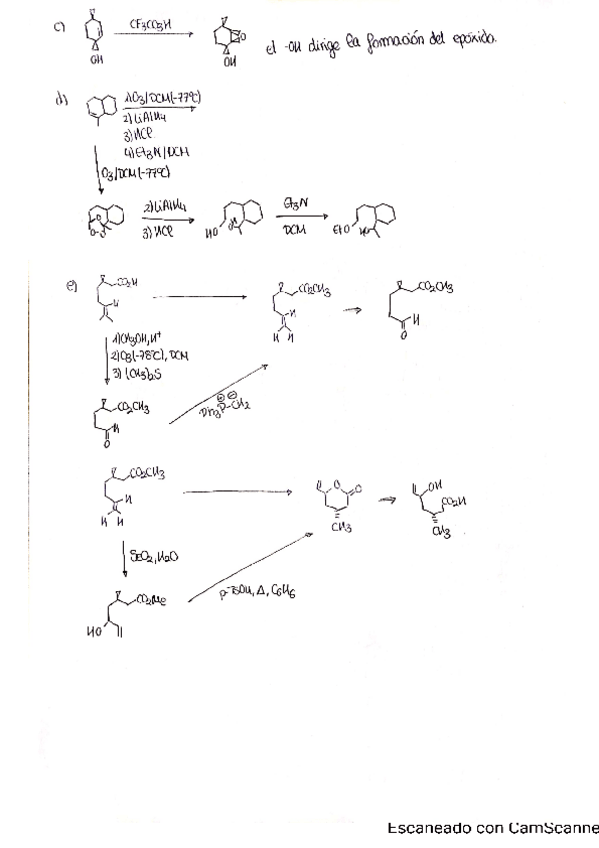 c) CF3CO3H
OH
O
OH
el -OH dirige la formación del epóxido.
d) 1) O3/DCM (-77ºC)
2) LiAlH4
3) HCl
4) Et3N/DCM
O3/DCM (-77ºC)
2) LiAlH4
3) HCl
HO
Et3N
DCM
EtO
e) CO2H
H
CO2CH3
H
H H
CO2CH3
H
O
1) CH3OH, H+
2) O3 (-78ºC), DCM
3) (CH3)2S
CO2CH3
H
O
Ph3P-CH2
CO2CH3
H
H H
O
O
CH3
OH
CO2H
CH3
SeO2, H2O
CO2Me
HO
p-TsOH, Δ, C6H6
Escaneado con CamScanne